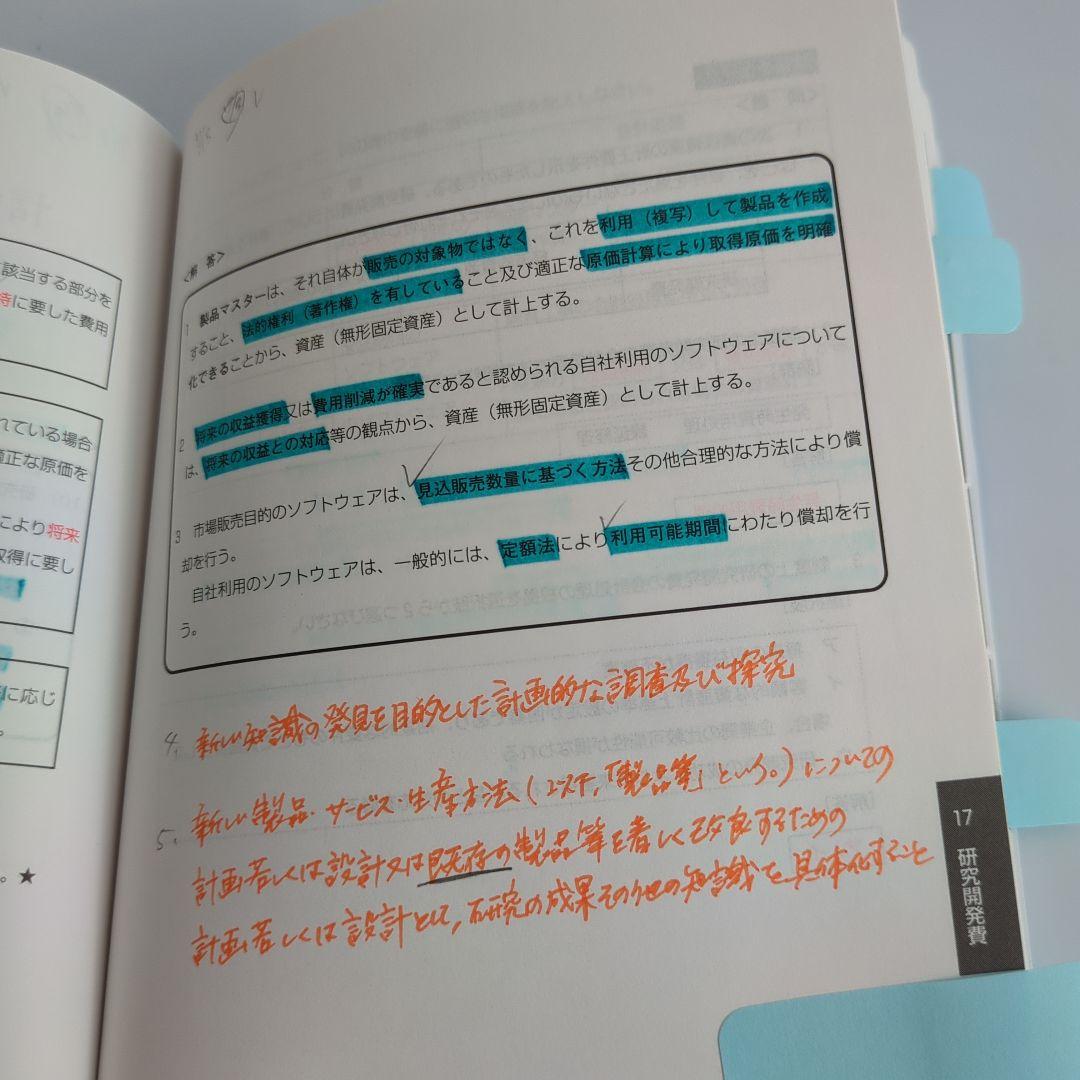 該当する部分を
に要した費用
れている場合
適正な原価を
により将来
取得に要し
に応じ
。
。★
<解 答>
1 製品マスターは、それ自体が販売の対象物ではなく、これを利用（複写）して製品を作成
すること、法的権利（著作権）を有していること及び適正な原価計算により取得原価を明確
化できることから、資産（無形固定資産）として計上する。
2 将来の収益獲得又は費用削減が確実であると認められる自社利用のソフトウェアについて
は、将来の収益との対応等の観点から、資産（無形固定資産）として計上する。
3 市場販売目的のソフトウェアは、見込販売数量に基づく方法その他合理的な方法により償
却を行う。
自社利用のソフトウェアは、一般的には、定額法により利用可能期間にわたり償却を行
う。
4. 新しい知識の発見を目的とした計画的な調査及び探究
5. 新しい製品・サービス・生産方法（以下、「製品等」という。）についての
計画若しくは設計又は既存の製品等を著しく改良するための
計画若しくは設計として、研究の成果その他の知識を具体化すること
17 研究開発費